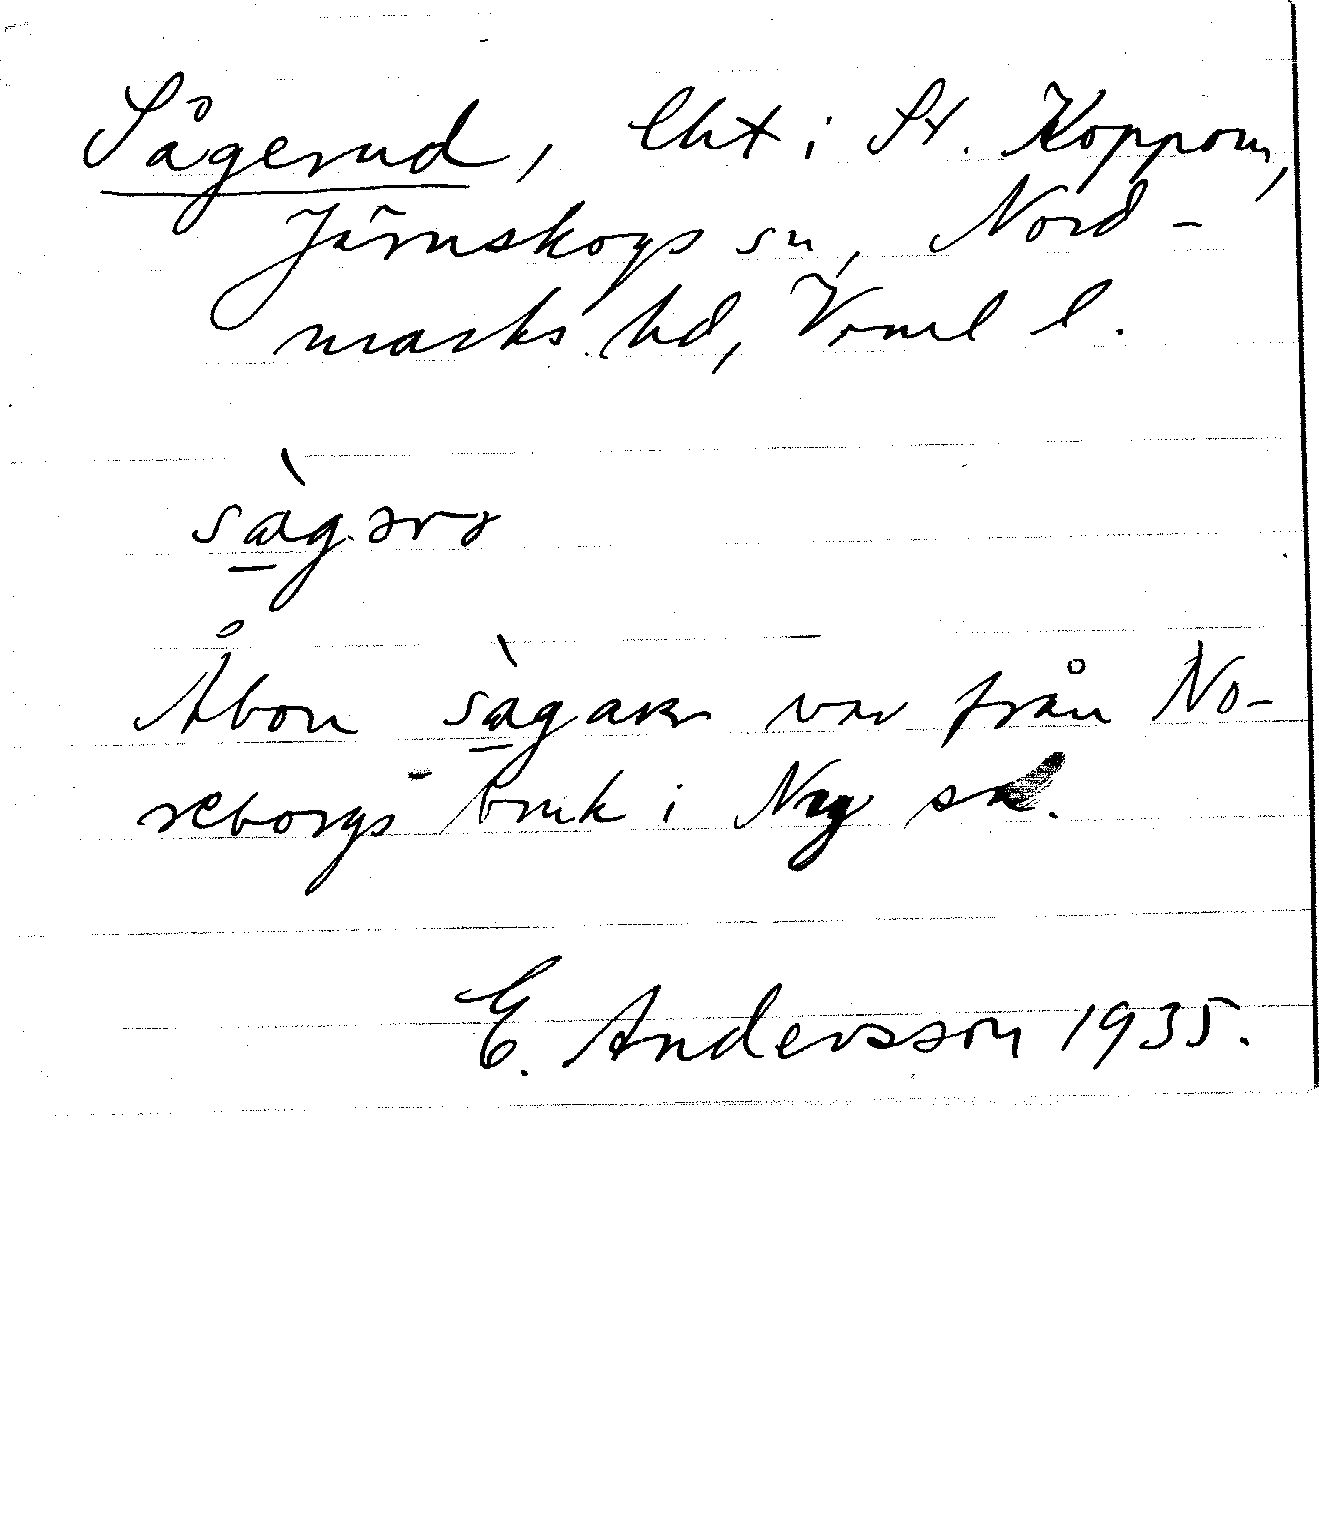 Sågerud, lht i St. Koppom,
Järnskogs sn, Nord-
marks hd, Vrml l.
sàgərə
Åbon sàgarn var från No-
reborgs bruk i Ny sn.
E. Andersson 1935.